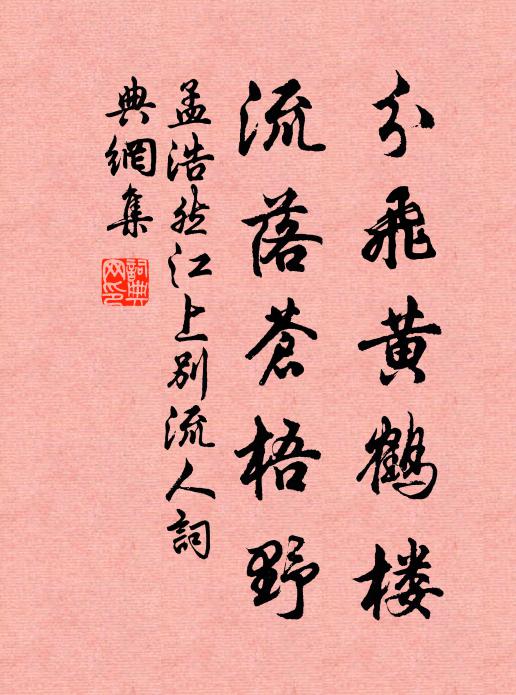 分飛黄鶴楼
流落蒼梧野
孟浩然江上别流人詞
典網集
詞典网印